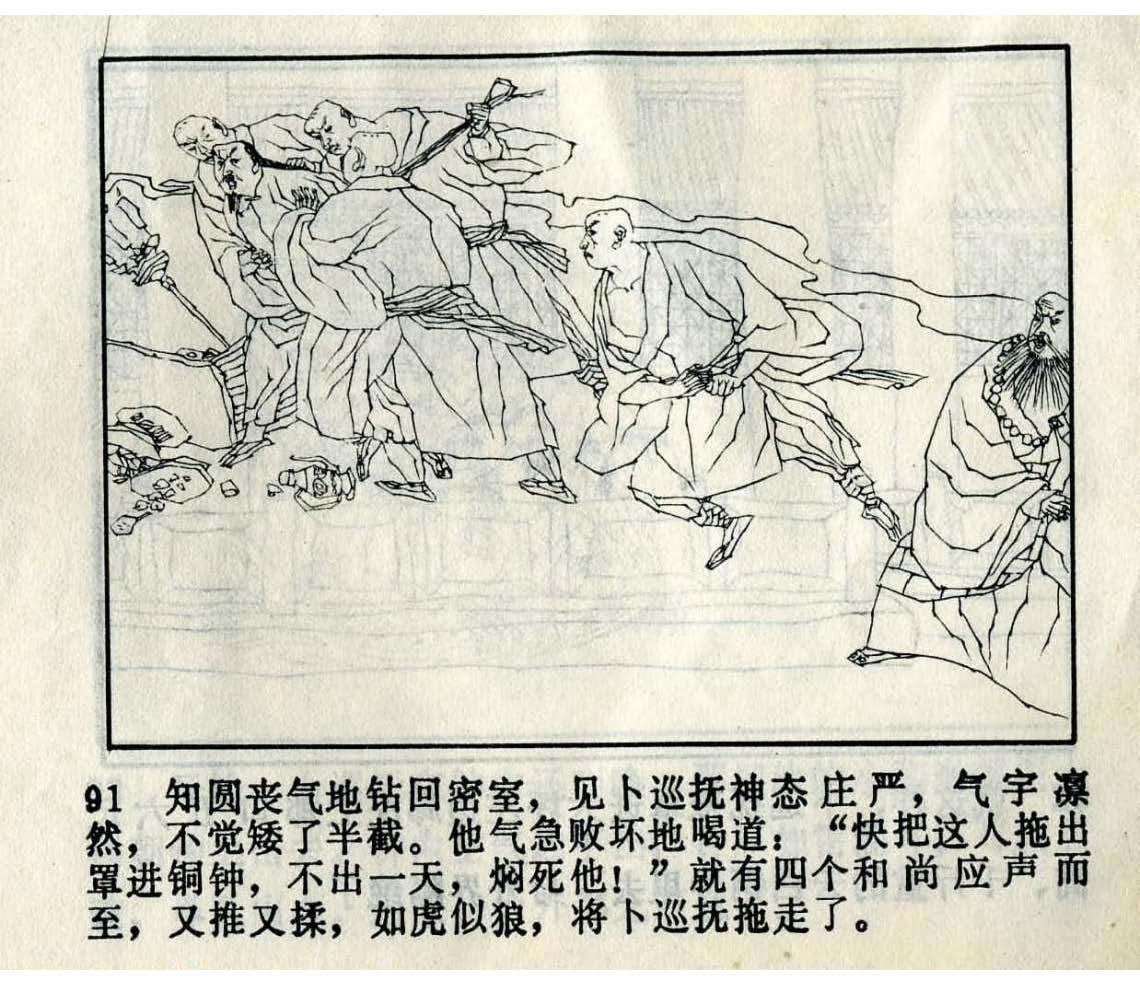 91 知圆丧气地钻回密室，见卜巡抚神态庄严，气宇凛
然，不觉矮了半截。他气急败坏地喝道：“快把这人拖出
罩进铜钟，不出一天，焖死他！”就有四个和尚应声而
至，又推又揉，如虎似狼，将卜巡抚拖走了。